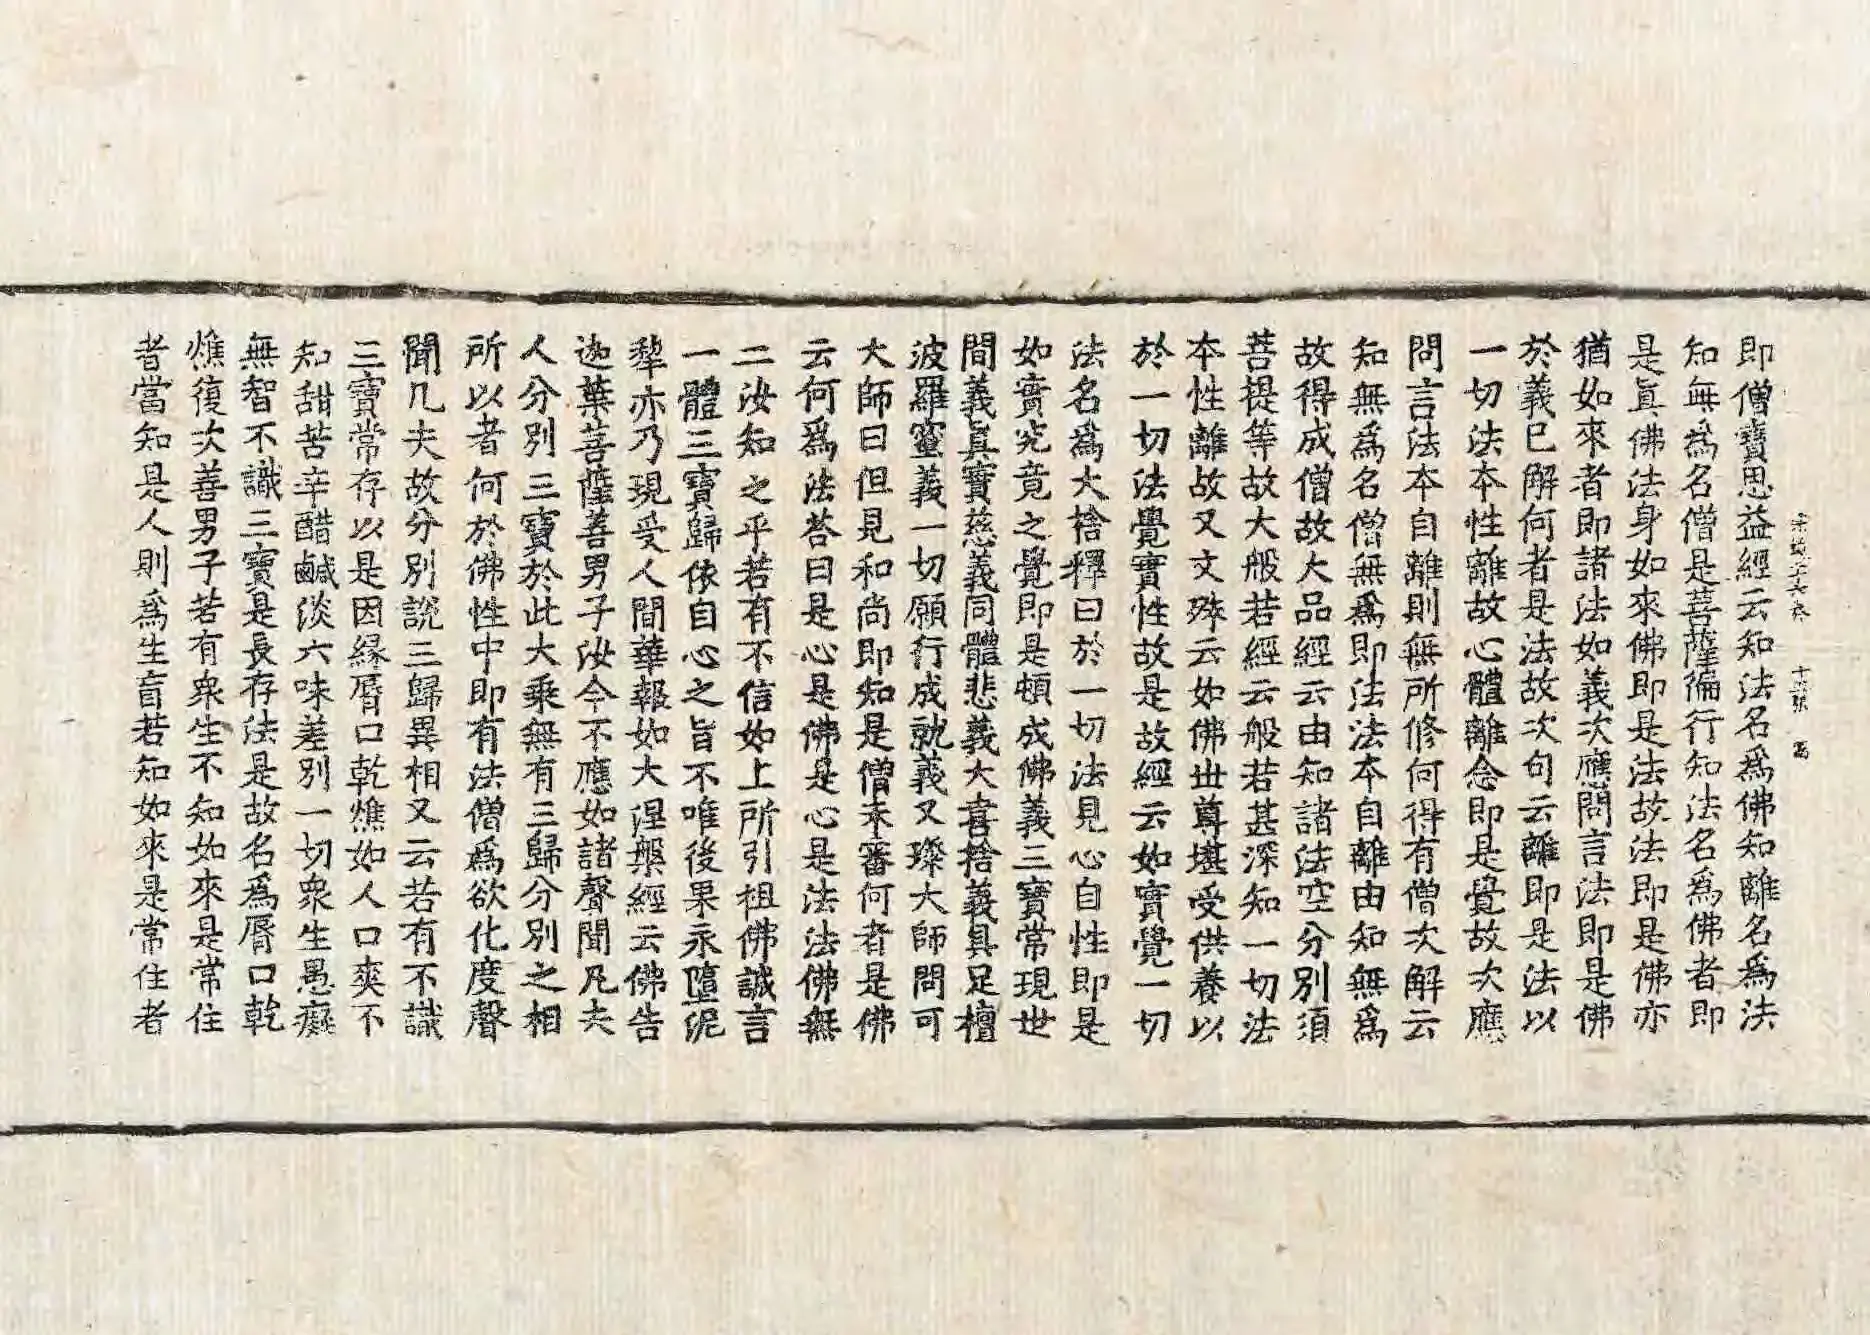 即僧寶思益經云知法名爲佛知離名爲法
知無爲名僧是菩薩徧行知法名爲佛者即
是眞佛法身如來佛即是法故法即是佛亦
猶如來者即諸法如義次應問言法即是佛
於義已解何者是法故次句云離即是法以
一切法本性離故心體離念即是覺故次應
問言法本自離則無所修何得有僧次解云
知無爲名僧無爲即法法本自離由知無爲
故得成僧故大品經云由知諸法空分別須
菩提等故大般若經云般若甚深知一切法
本性離故又文殊云如佛世尊堪受供養以
於一切法覺實性故是故經云如實覺一切
法名爲大捨釋曰於一切法見心自性即是
如實究竟之覺即是頓成佛義三寶常現世
間義眞實慈義同體悲義大喜捨義具足檀
波羅蜜義一切願行成就義又璨大師問可
大師曰但見和尚即知是僧未審何者是佛
云何爲法荅曰是心是佛是心是法法佛無
二汝知之乎若有不信如上所引祖佛誠言
一體三寶歸依自心之旨不唯後果永墮泥
犂亦乃現受人間華報如大涅槃經云佛告
迦葉菩薩善男子汝今不應如諸聲聞凡夫
人分別三寶於此大乘無有三歸分別之相
所以者何於佛性中即有法僧爲欲化度聲
聞凡夫故分別說三歸異相又云若有不識
三寶常存以是因緣脣口乾燋如人口爽不
知甜苦辛醋鹹淡六味差別一切衆生愚癡
無智不識三寶是長存法是故名爲脣口乾
燋復次善男子若有衆生不知如來是常住
者當知是人則爲生盲若知如來是常住者